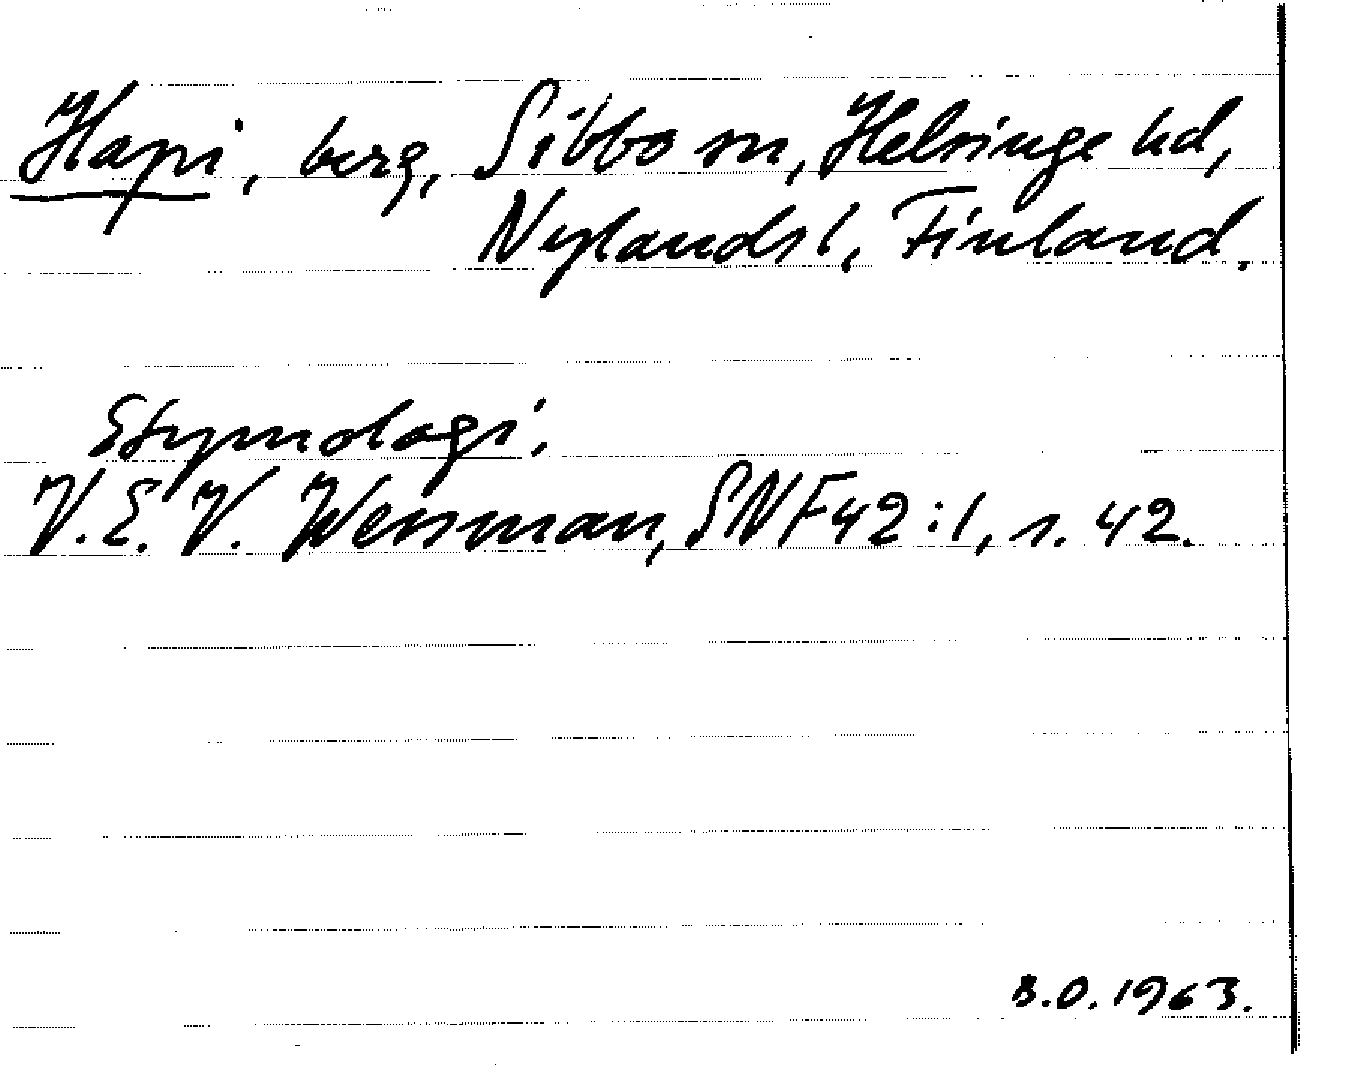 Hapi, berg, Sibbo sn, Helsinge hd,
Nylands l, Finland.
Etymologi:
V.E.V. Wessman, SNF 42:1, s. 42.
B.O. 1963.